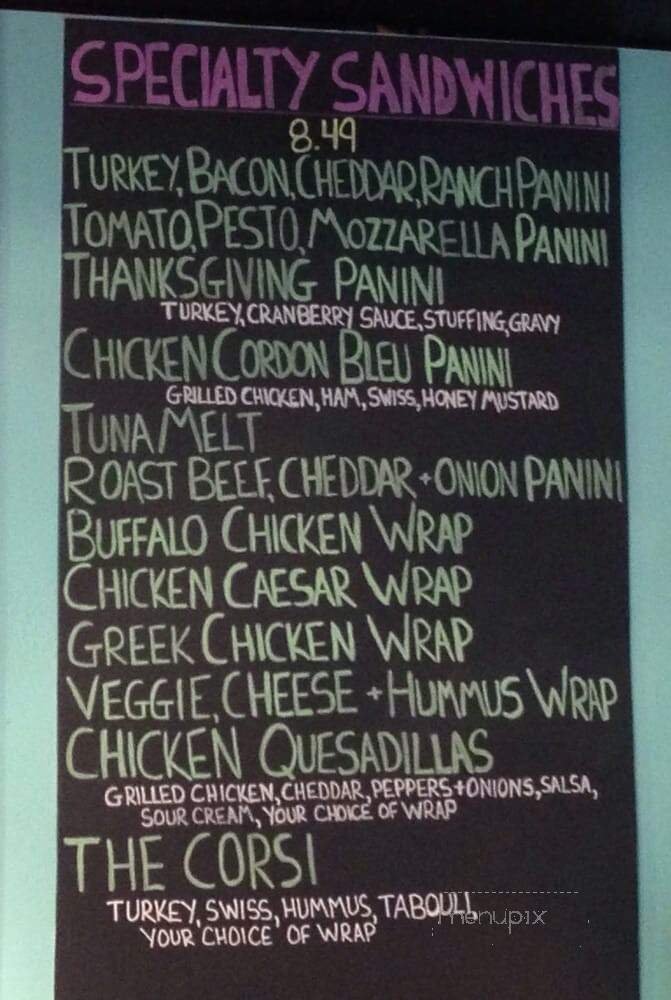 SPECIALTY SANDWICHES
8.49
TURKEY, BACON, CHEDDAR, RANCH PANINI
TOMATO, PESTO, MOZZARELLA PANINI
THANKSGIVING PANINI
TURKEY, CRANBERRY SAUCE, STUFFING, GRAVY
CHICKEN CORDON BLEU PANINI
GRILLED CHICKEN, HAM, SWISS, HONEY MUSTARD
TUNA MELT
ROAST BEEF, CHEDDAR + ONION PANINI
BUFFALO CHICKEN WRAP
CHICKEN CAESAR WRAP
GREEK CHICKEN WRAP
VEGGIE, CHEESE + HUMMUS WRAP
CHICKEN QUESADILLAS
GRILLED CHICKEN, CHEDDAR, PEPPERS + ONIONS, SALSA,
SOUR CREAM, YOUR CHOICE OF WRAP
THE CORSI
TURKEY, SWISS, HUMMUS, TABOULI,
menupix
YOUR CHOICE OF WRAP